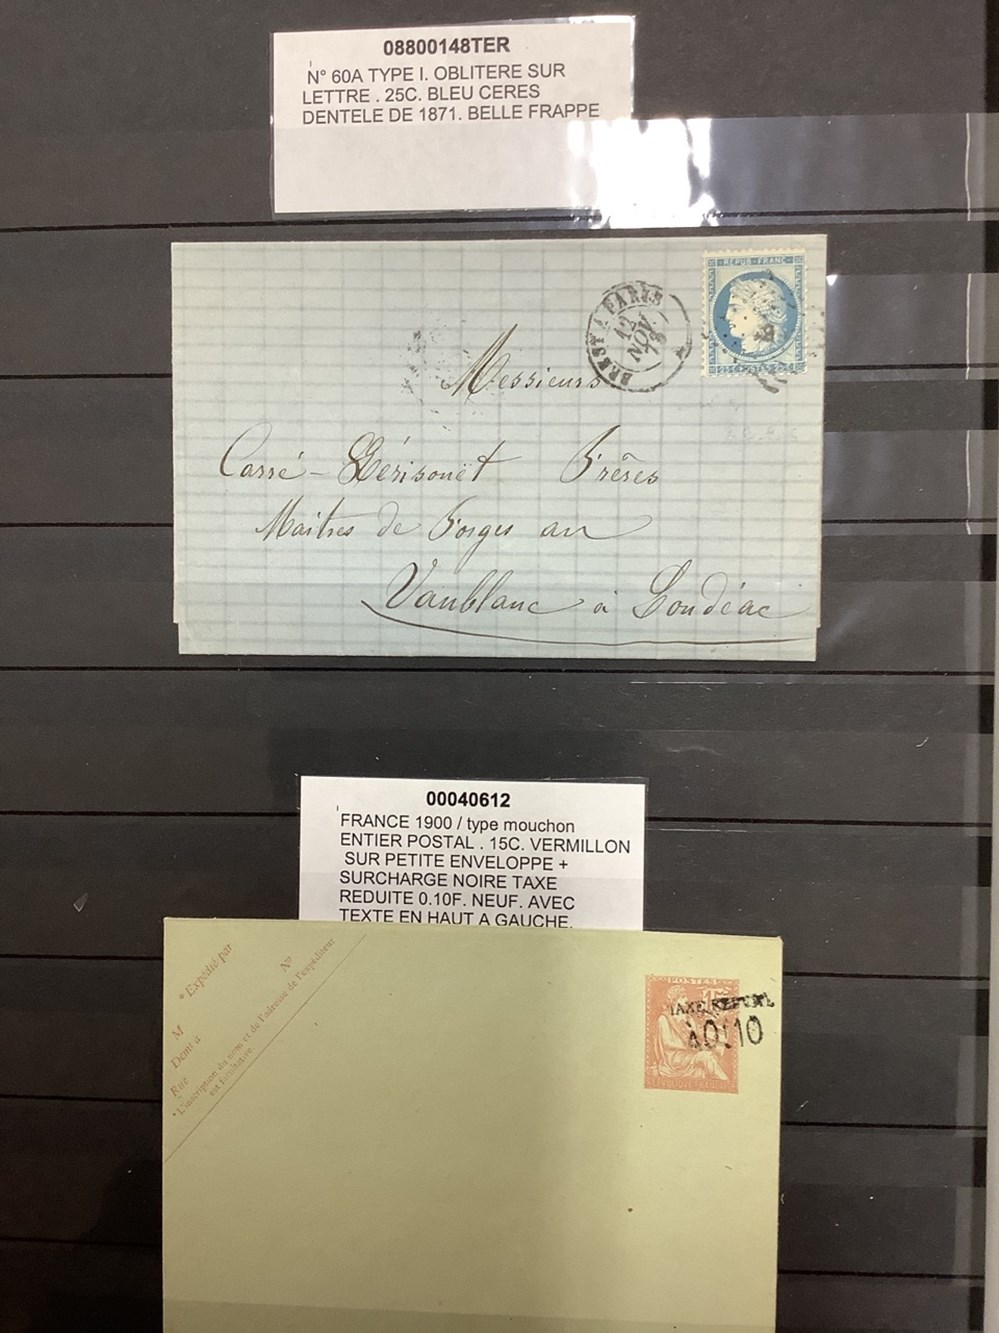 08800148TER
N° 60A TYPE I. OBLITERE SUR
LETTRE . 25C. BLEU CERES
DENTELE DE 1871. BELLE FRAPPE
REPUB·FRANC
BREST A PARIS
12
NOV
73
Messieurs
Carré - Kérisouët Frères
Maîtres de Forges au
Vaublanc à Loudéac
00040612
FRANCE 1900 / type mouchon
ENTIER POSTAL . 15C. VERMILLON
SUR PETITE ENVELOPPE +
SURCHARGE NOIRE TAXE
REDUITE 0.10F. NEUF. AVEC
TEXTE EN HAUT A GAUCHE.
* Expédié par
M
Demt à
Rue N°
* L'inscription du nom et de l'adresse de l'expéditeur
est facultative.
POSTES
15
TAXE RÉDUITE
À 0f 10
REPUBLIQUE FRANÇAISE